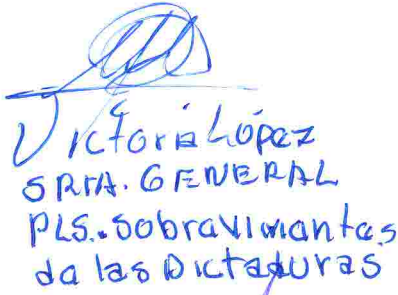 Victoria López
SRIA. GENERAL
PLS. Sobraviviantas
da las Dictaduras